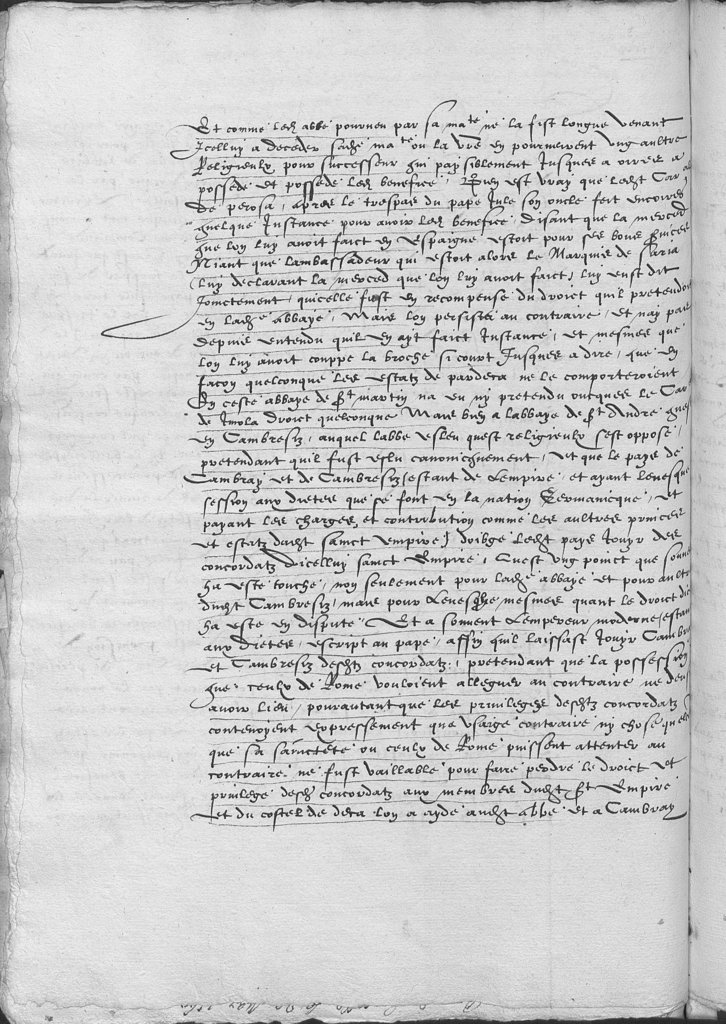 Et comme led. abbé pourveu par sa ma.te ne la fist longue venant
Icelluy a deceder sad. ma.te ou la vre en pourveurent ung aultre
Religieulx pour successeur qui paysiblement Jusques a ores a
possede et possede led. benefice. Bien est vray que ledit Car.al
de perosa, apres le trespas du pape Jule son oncle feit encoires
quelque Instance pour avoir led. benefice, disant que la merced
que lon luy avoit faict en Espaigne estoit pour ses bons services
Niant que lambassadeur qui estoit alors le Marquis de Saria
luy declarant la merced que lon luy avoit faict, luy eust dit
Joinctement, quicelle fust en recompense du droict quil pretendoit
en lad.e abbaye, Mais lon persista au contraire, et nay pas
depuis entendu quil en ayt faict Instance, et mesmes que
lon luy avoit couppe la broche si court Jusques a dire, que en
facon quelconque les estatz de pardeca ne le comporteroient
En ceste abbaye de St martin na eu ny pretendu oncques le Car.al
de Imola droict quelconque Mais bien a labbaye de St Andre
en Cambresiz, auquel labbe esleu quest religieulx sest oppose,
pretendant quil fust eslu canonicquement, et que le pays de
Cambray et de Cambresiz (estant de Lempire, et ayant levesque
session aux dietes que se font en la nation Germanicque, et
payant les charges et contribution comme les aultres princes
et estatz dudit sainct empire) doibge ledit pays Jouyr des
concordatz dicelluy sainct Empire, Quest ung poinct que souvent
ha este touche, non seulement pour lad.e abbaye et pour aultres
dudit Cambresiz, mais pour Levesche, mesmes quant le droict
ha este en dispute. Et a souvent Lempereur moderne, estant
aux dietes, escript au pape, affin quil laissast Jouyr Cambray
et Cambresiz desditz concordatz, pretendant que la possession
que ceulx de Rome vouloient alleguer au contraire ne deust
avoir lieu, pourautant que les privileges desditz concordatz
contenoyent expressement que usaige contraire ny chose quelconque
que sa sainctete ou ceulx de Rome puissent attenter au
contraire ne fust vaillable pour faire perdre le droict et
privilege desd. concordatz aux membres dudit St Empire
et du costel de deca lon a ayde audit abbe et a Cambray